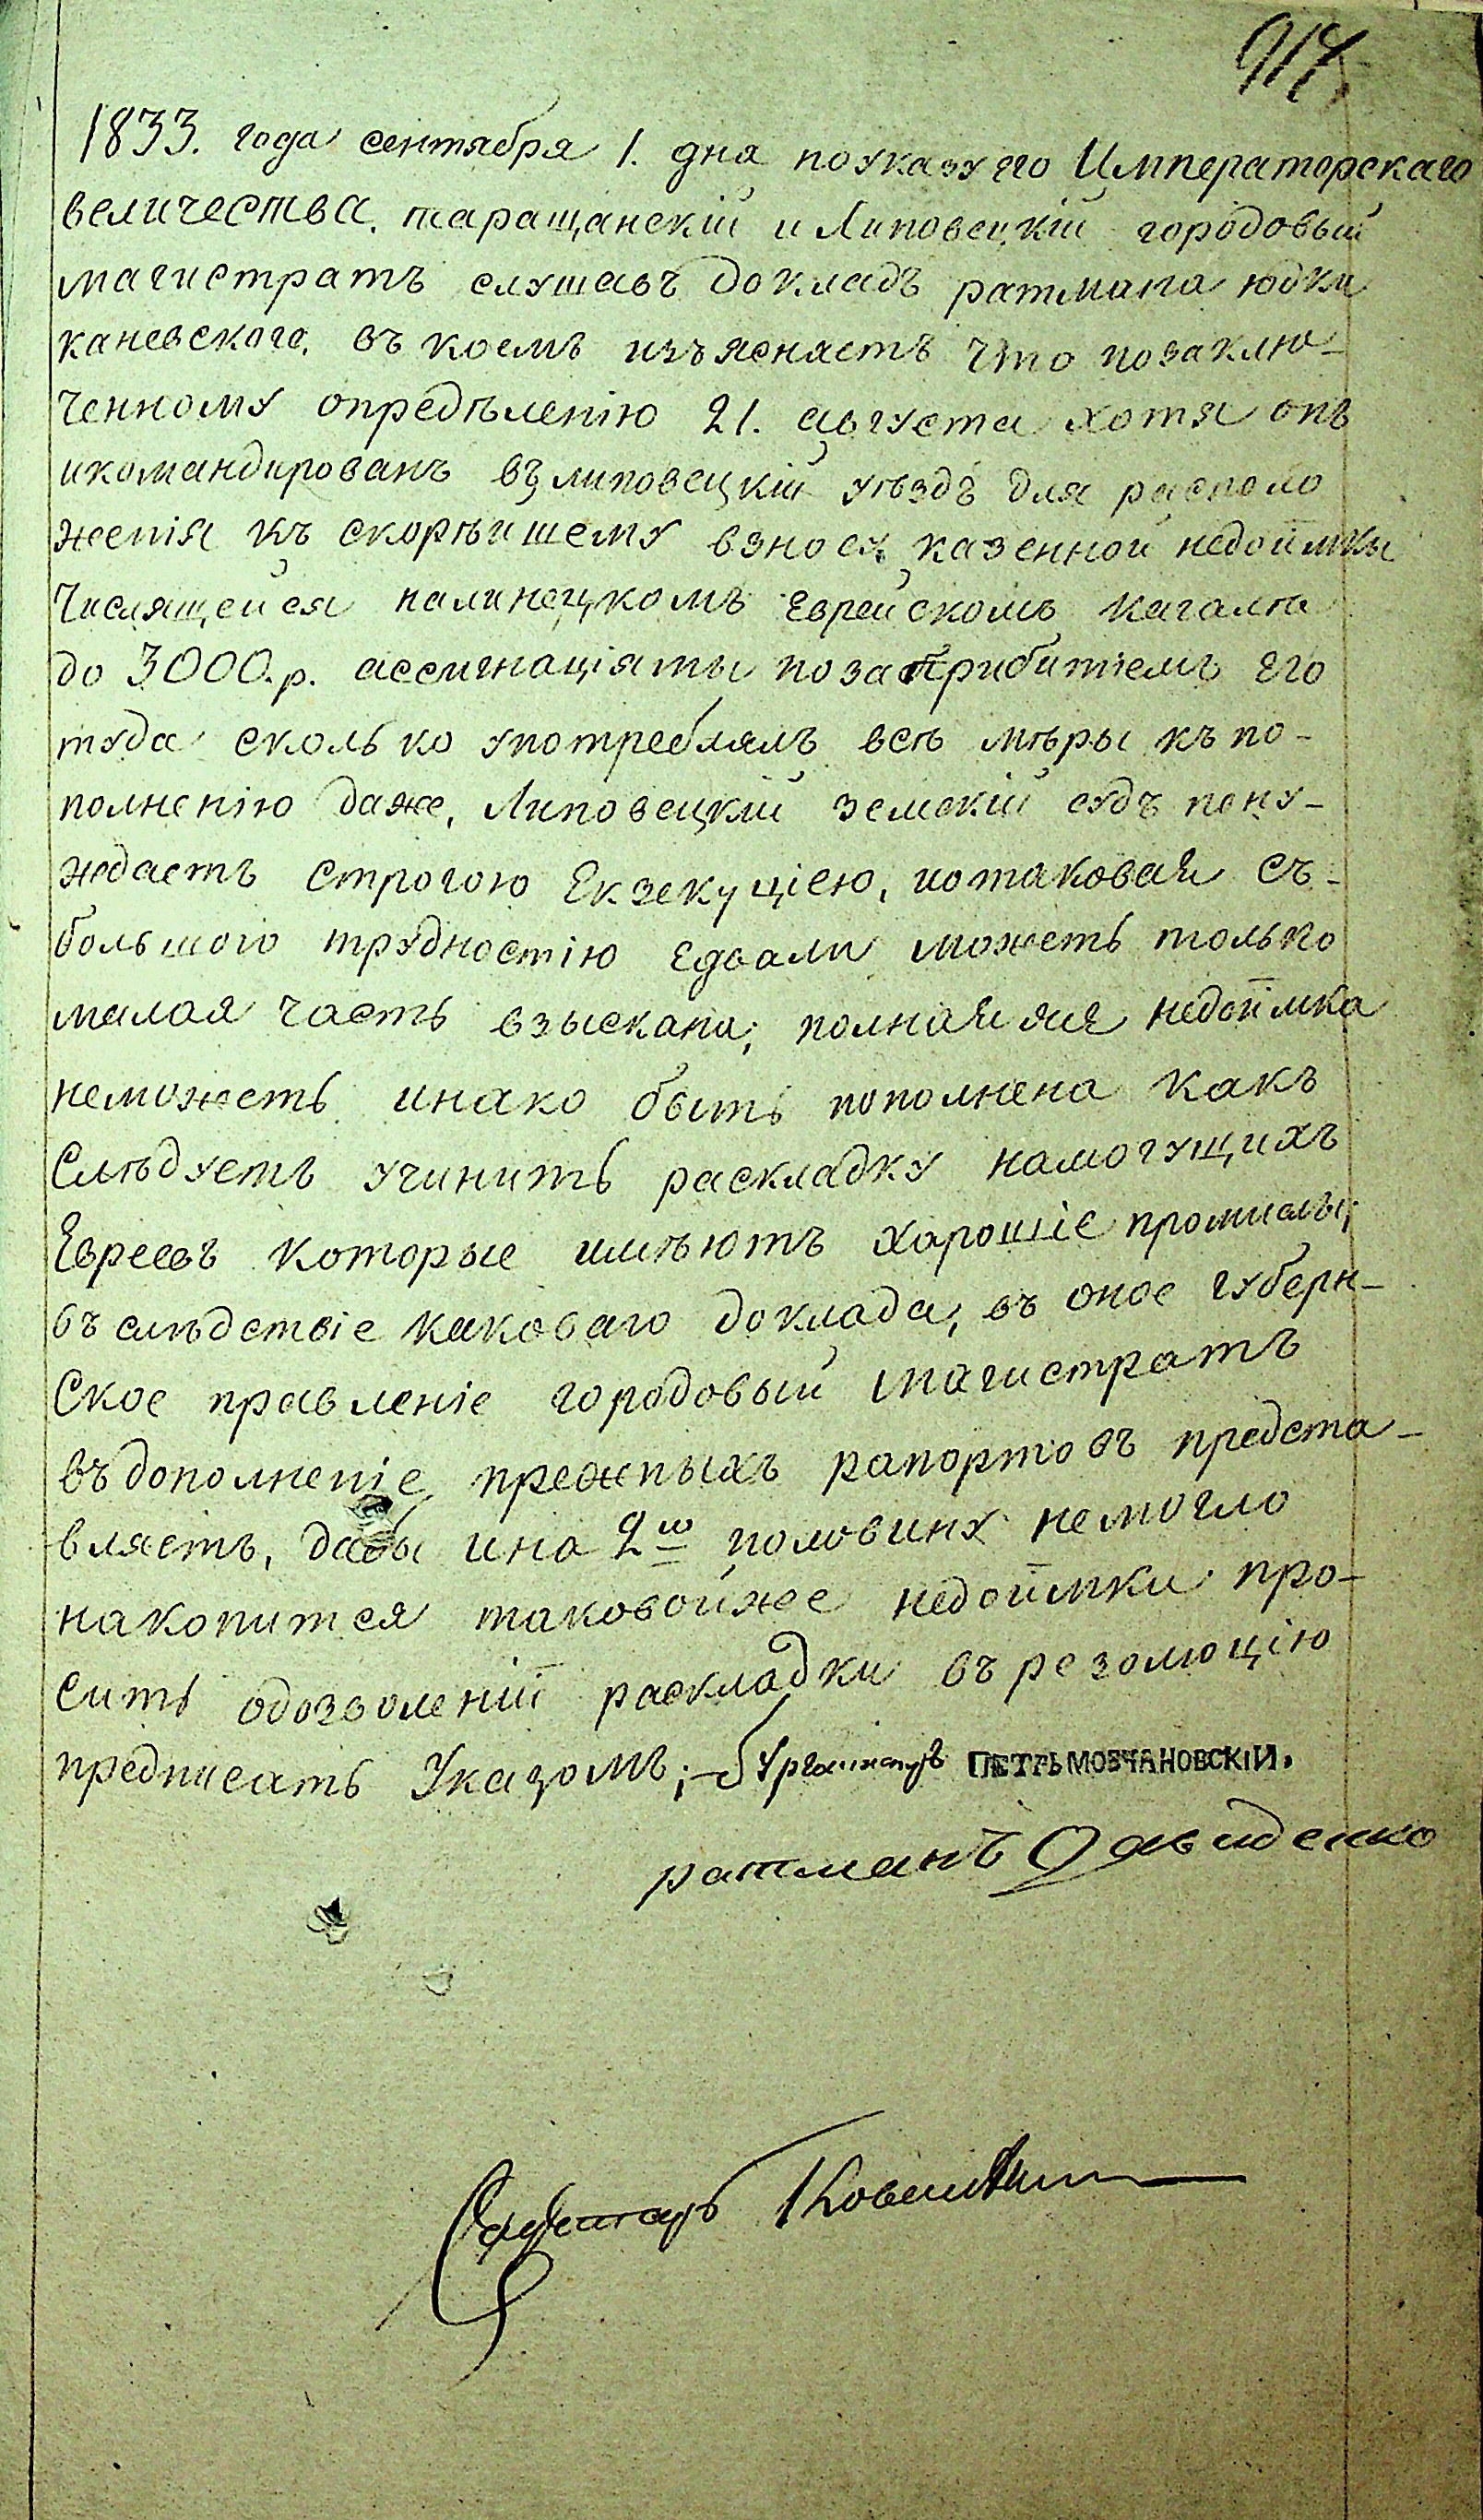 1833. года сентября 1. дня по указу его Императорскаго
величества. таращанскій и Липовецкій городовый
магистратъ слушавъ докладъ ратмана юдки
каневского, въ коемъ изъясняетъ что позаклю-
ченному определѣнію 21. августа хотя онъ
икомандированъ въ липовецкій уѣздъ для располо
женія къ скорѣйшему взносу казенной недоимки
числящейся налинецкомъ еврейскомъ кагалѣ
до 3000.р. ассигнаціяты по за прибитіемъ его
туда сколько употреблялъ всѣ мѣры къ по-
полненію даже, Липовецкій земскій судъ пону-
ждаетъ строгою екзекуціею, нотаковая съ-
большого трудностію едвали можетъ только
малая часть взыскана; полная яже недоимка
неможеть инако быть пополнена какъ
Слѣдуетъ учинить раскладку намогущихъ
Евреевъ которые имѣютъ хорошіе промислы;
въ слѣдствіе каковаго доклада, въ оное губерн-
Ское правленіе городовый магистратъ
въ дополненіе прежныхъ рапортовъ предста-
вляетъ, дабы ина 2ю половину немогло
накопится таковойже недоимки про-
сить одозволеніи раскладки въ резолюцію
предписать Указомъ; – бургомистръ ПЕТРЬ МОВЧАНОВСКІЙ.
ратманъ Давиденко